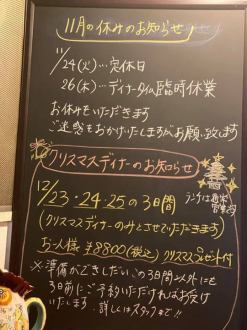 11月の休みのお知らせ
11/24(火)…定休日
26(木)…ディナータイム臨時休業
お休みをいただきます
ご迷惑をおかけいたしますがお願い致します
クリスマスディナーのお知らせ
12/23・24・25の3日間
ランチは通常営業
(クリスマスディナーのみとさせていただきます)
お一人様 ¥8800(税込) クリスマスプレゼント付
※準備ができしだいこの3日間以外にも
3日前にご予約いただければお受け
いたします 詳しくはスタッフまで!!